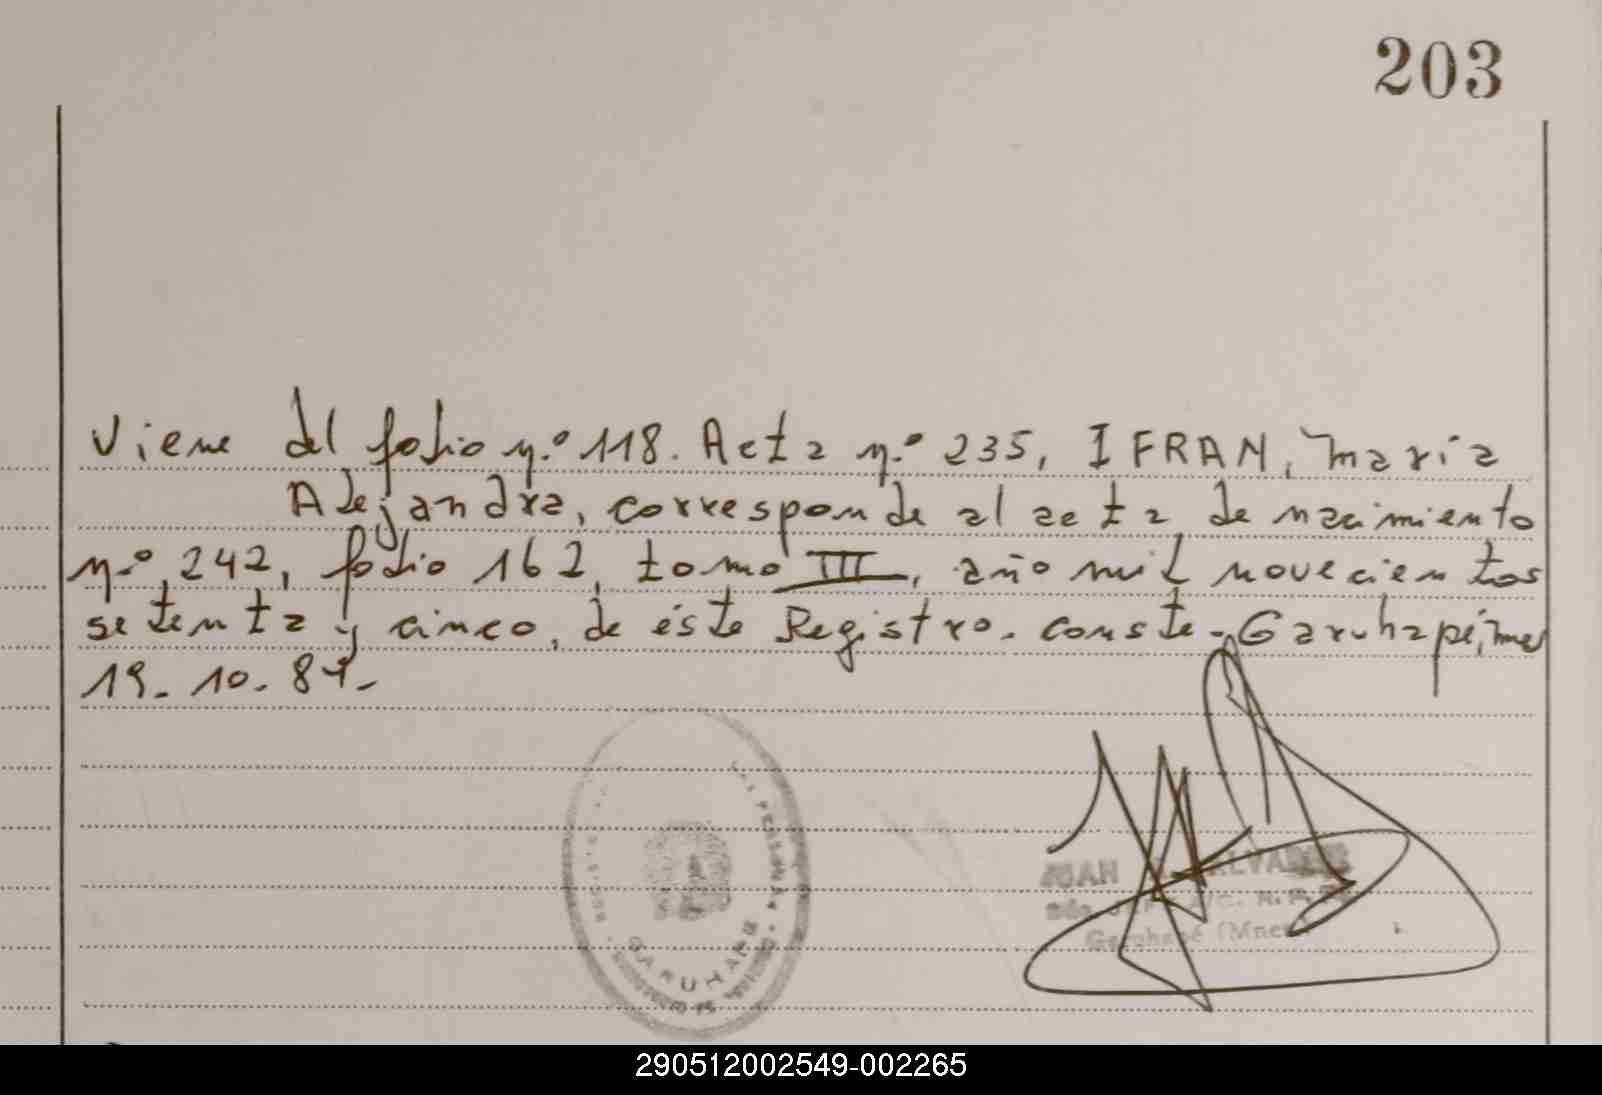 203
Viene del folio n.º 118. Acta n.º 235, IFRAN, maria
Alejandra, corresponde al acta de nacimiento
n.º 242, folio 162, tomo III, año mil novecientos
setenta y cinco, de éste Registro. Conste. Garuhapé, mes
19. 10. 87.
JUAN
Garuhapé (Mnes)
GARUHAPE
290512002549-002265